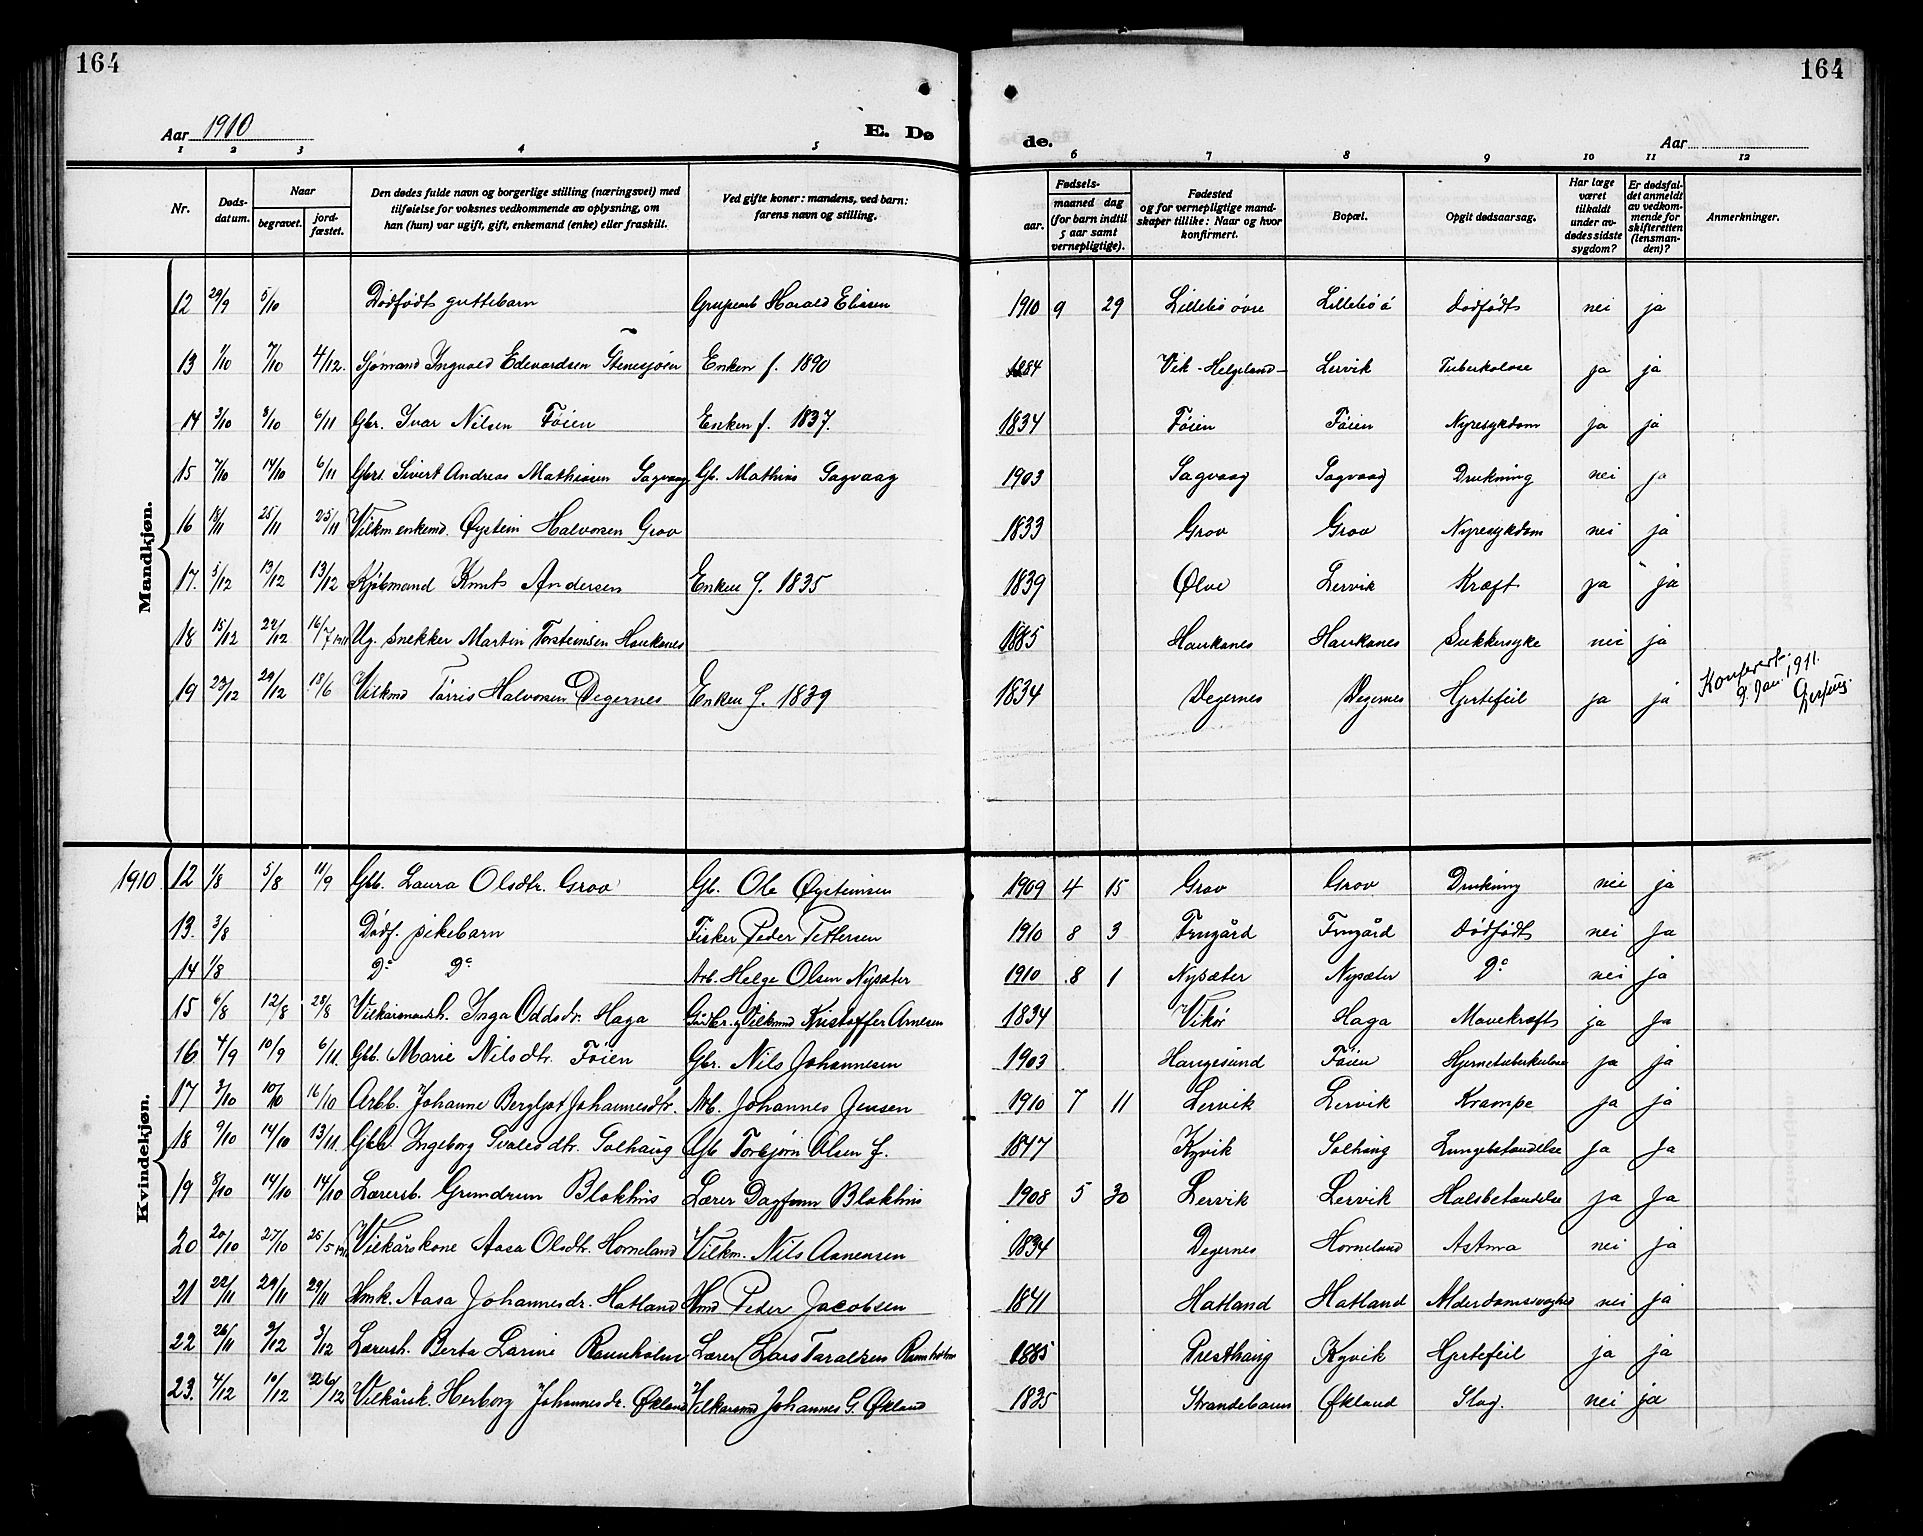 164
164
Aar 1910
E. Dø
de.
Aar
1 2 3 4 5 6 7 8 9 10 11 12
Nr.
Døds-datum.
Naar
begravet.
jord-fæstet.
Den dødes fulde navn og borgerlige stilling (næringsvei) med tilføielse for voksnes vedkommende av oplysning, om han (hun) var ugift, gift, enkemand (enke) eller fraskilt.
Ved gifte koner: mandens, ved barn: farens navn og stilling.
Fødsels-
aar.
maaned dag
(for barn indtil 5 aar samt vernepligtige).
Fødested og for vernepligtige mand-skaper tillike: Naar og hvor konfirmert.
Bopæl.
Opgit dødsaarsag.
Har læge været tilkaldt under av-dødes sidste sygdom?
Er dødsfal-det anmeldt av vedkom-mende for skifteretten (lensman-den)?
Anmerkninger.
Mandkjøn.
12 29/9 5/10 Dødfødt guttebarn Grubearb Harald Eliasen 1910 9 29 Lillebø övre Lillebø ö dødfødt nei ja
13 1/10 7/10 4/12. Sjömand Ingvald Edvardsen Stenesjøen Enken f. 1890 1884 Vik - Helgeland - Lervik Tuberkolose ja ja
14 3/10 8/10 6/11 Gbr. Ivar Nilsen Föien Enken f. 1837. 1834 Föien Föien Nyresykdom ja ja
15 7/10 14/10 6/11 Gbrs. Sivert Andreas Mathiasen Sagvaag Gb. Mathias Sagvaag 1903 Sagvaag Sagvaag Drukning nei ja
16 18/11 25/11 25/11 Vilkm enkemd. Øystein Halvorsen Grov 1833 Grov Grov Nyresykdom nei ja
17. 5/12 13/12 13/12 Kjöbmand Knut Andersen Enken f. 1835 1839 Ølve Lervik Kræft ja ja
18 15/12 22/12 16/7 1911 Ug. snekker Martin Torsteinsen Haukanes 1885 Haukanes Haukanes Sukkersyke nei ja
19 23/12 29/12 18/6 Vilkmd Tørris Halvorsen Degernes Enken f. 1839 1834 Degernes Degernes Hjertefeil ja ja
Konferert. 9. Jan. 1911.
Kvindekjøn.
1910 12 1/8 5/8 11/9 Gbb. Laura Olsdtr. Grov Gb. Ole Øysteinsen 1909 4 15 Grov Grov Drukning nei ja
13. 3/8 Dødf. pikebarn Fisker Peder Pettersen 1910 8 3 Frugård Frugård dødfødt nei ja
14 1/8 Do Do Arb. Helge Olsen Nysæter 1910 8 1 Nysæter Nysæter Do nei ja
15 6/8 12/8 28/8 Inga Oddsdr. Haga Vilkmd Kristoffer Arnesen 1834 Vikör Haga Mavekræft ja ja
16 4/9 10/9 6/11. Gbb. Marie Nilsdtr. Föien Gbr. Nils Johannesen 1903 Haugesund Föien Hjernetuberkulose ja ja
17 3/10 10/10 16/10 Arbb. Johanne Bergljot Johannesdtr. Arb. Johannes Jensen 1910 7 11 Lervik Lervik Krampe ja ja
18 9/10 14/10 13/11. Ingeborg Tvalesdtr. Solhaug Gb Torbjørn Olsen f. 1847 Kyvik Solhaug Lungebetændelse ja ja
19 8/10 14/10 14/10 Lærersb. Gundrun Blokhus Lærer Dagfinn Blokhus 1908 5 30 Lervik Lervik Halsbetændelse ja ja
20 20/10 27/10 25/5 Vilkårskone Aasa Olsdtr. Horneland Vilkm. Nils Aanensen 1834 Degernes Horneland Astma nei ja
21 22/11 29/11 29/11 Hmk. Aasa Johannesdr. Hatland Hmd Peder Jacobsen 1841 Hatland Hatland Alderdomssvaghed nei ja
22 26/11 3/12 3/12 Lærersh. Berta Larine Ravnholm Lærer Lars Taraldsen Ravnholm 1885 Presthaug Kyvik Hjertefeil ja ja
23. 4/12 10/12 26/12 Vilkårsk. Herborg Johannesdr. Økland Vilkarsmd Johannes G. Økland 1835 Strandebarm Økland Slag. nei ja